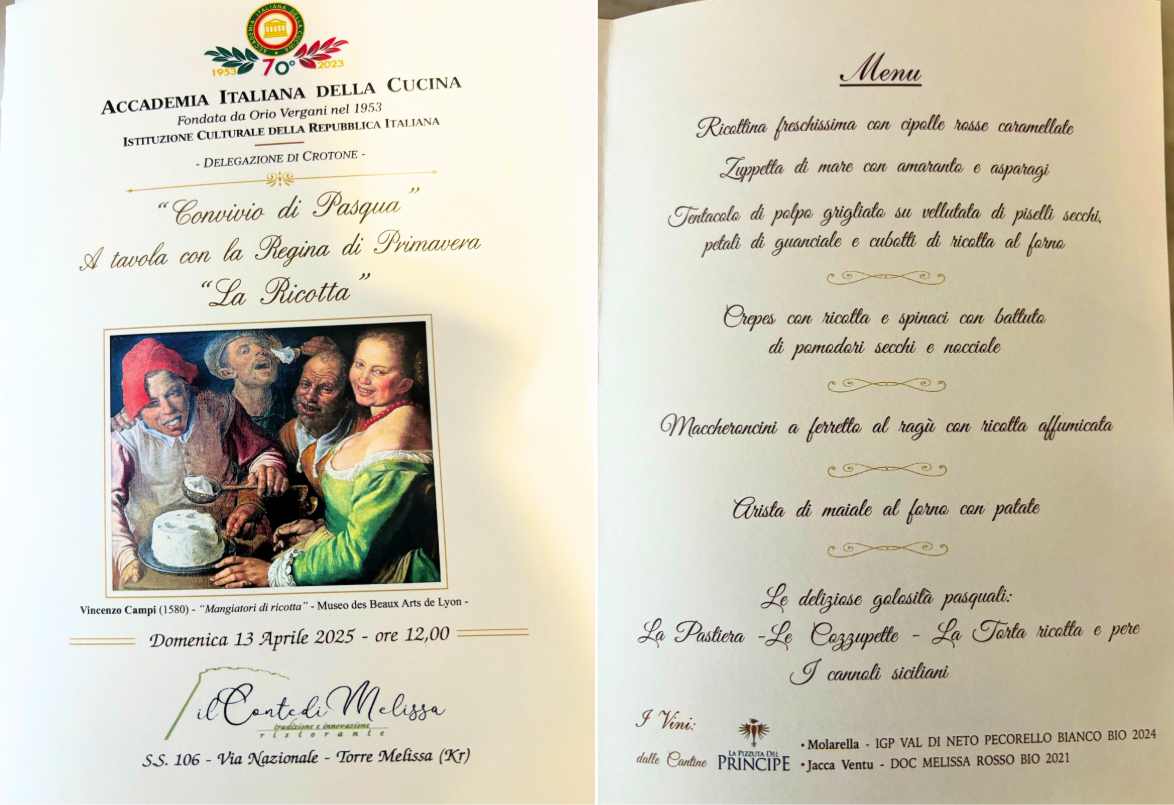 ACCADEMIA ITALIANA DELLA CUCINA
1953 70° 2023
ACCADEMIA ITALIANA DELLA CUCINA
Fondata da Orio Vergani nel 1953
ISTITUZIONE CULTURALE DELLA REPUBBLICA ITALIANA
- DELEGAZIONE DI CROTONE -
“Convivio di Pasqua”
A tavola con la Regina di Primavera
“La Ricotta”
Vincenzo Campi (1580) - “Mangiatori di ricotta” - Museo des Beaux Arts de Lyon -
Domenica 13 Aprile 2025 - ore 12,00
il Conte di Melissa
tradizione e innovazione
ristorante
S.S. 106 - Via Nazionale - Torre Melissa (Kr)
Menu
Ricottina freschissima con cipolle rosse caramellate
Zuppetta di mare con amaranto e asparagi
Tentacolo di polpo grigliato su vellutata di piselli secchi,
petali di guanciale e cubotti di ricotta al forno
Crepes con ricotta e spinaci con battuto
di pomodori secchi e nocciole
Maccheroncini a ferretto al ragù con ricotta affumicata
Arista di maiale al forno con patate
Le deliziose golosità pasquali:
La Pastiera -Le Cozzupette - La Torta ricotta e pere
I cannoli siciliani
I Vini:
dalle Cantine
LA PIZZUTA DEL
PRINCIPE
• Molarella - IGP VAL DI NETO PECORELLO BIANCO BIO 2024
• Jacca Ventu - DOC MELISSA ROSSO BIO 2021